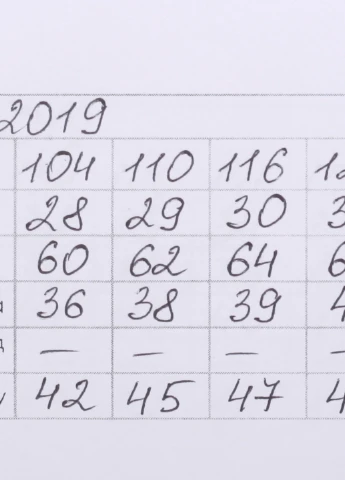 2019
104 110 116 12
28 29 30 3
60 62 64 6
36 38 39 4
— — — -
42 45 47 4